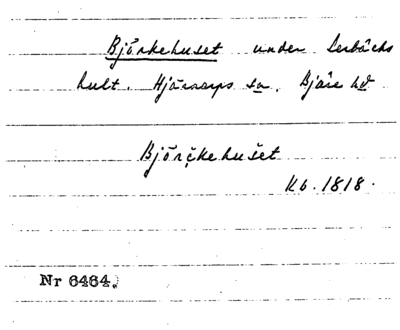 Björkehuset under Lerbäcks
hult. Hjärnarps sn. Bjäre hd
Björckehuset
Kb. 1818.
Nr 6464.